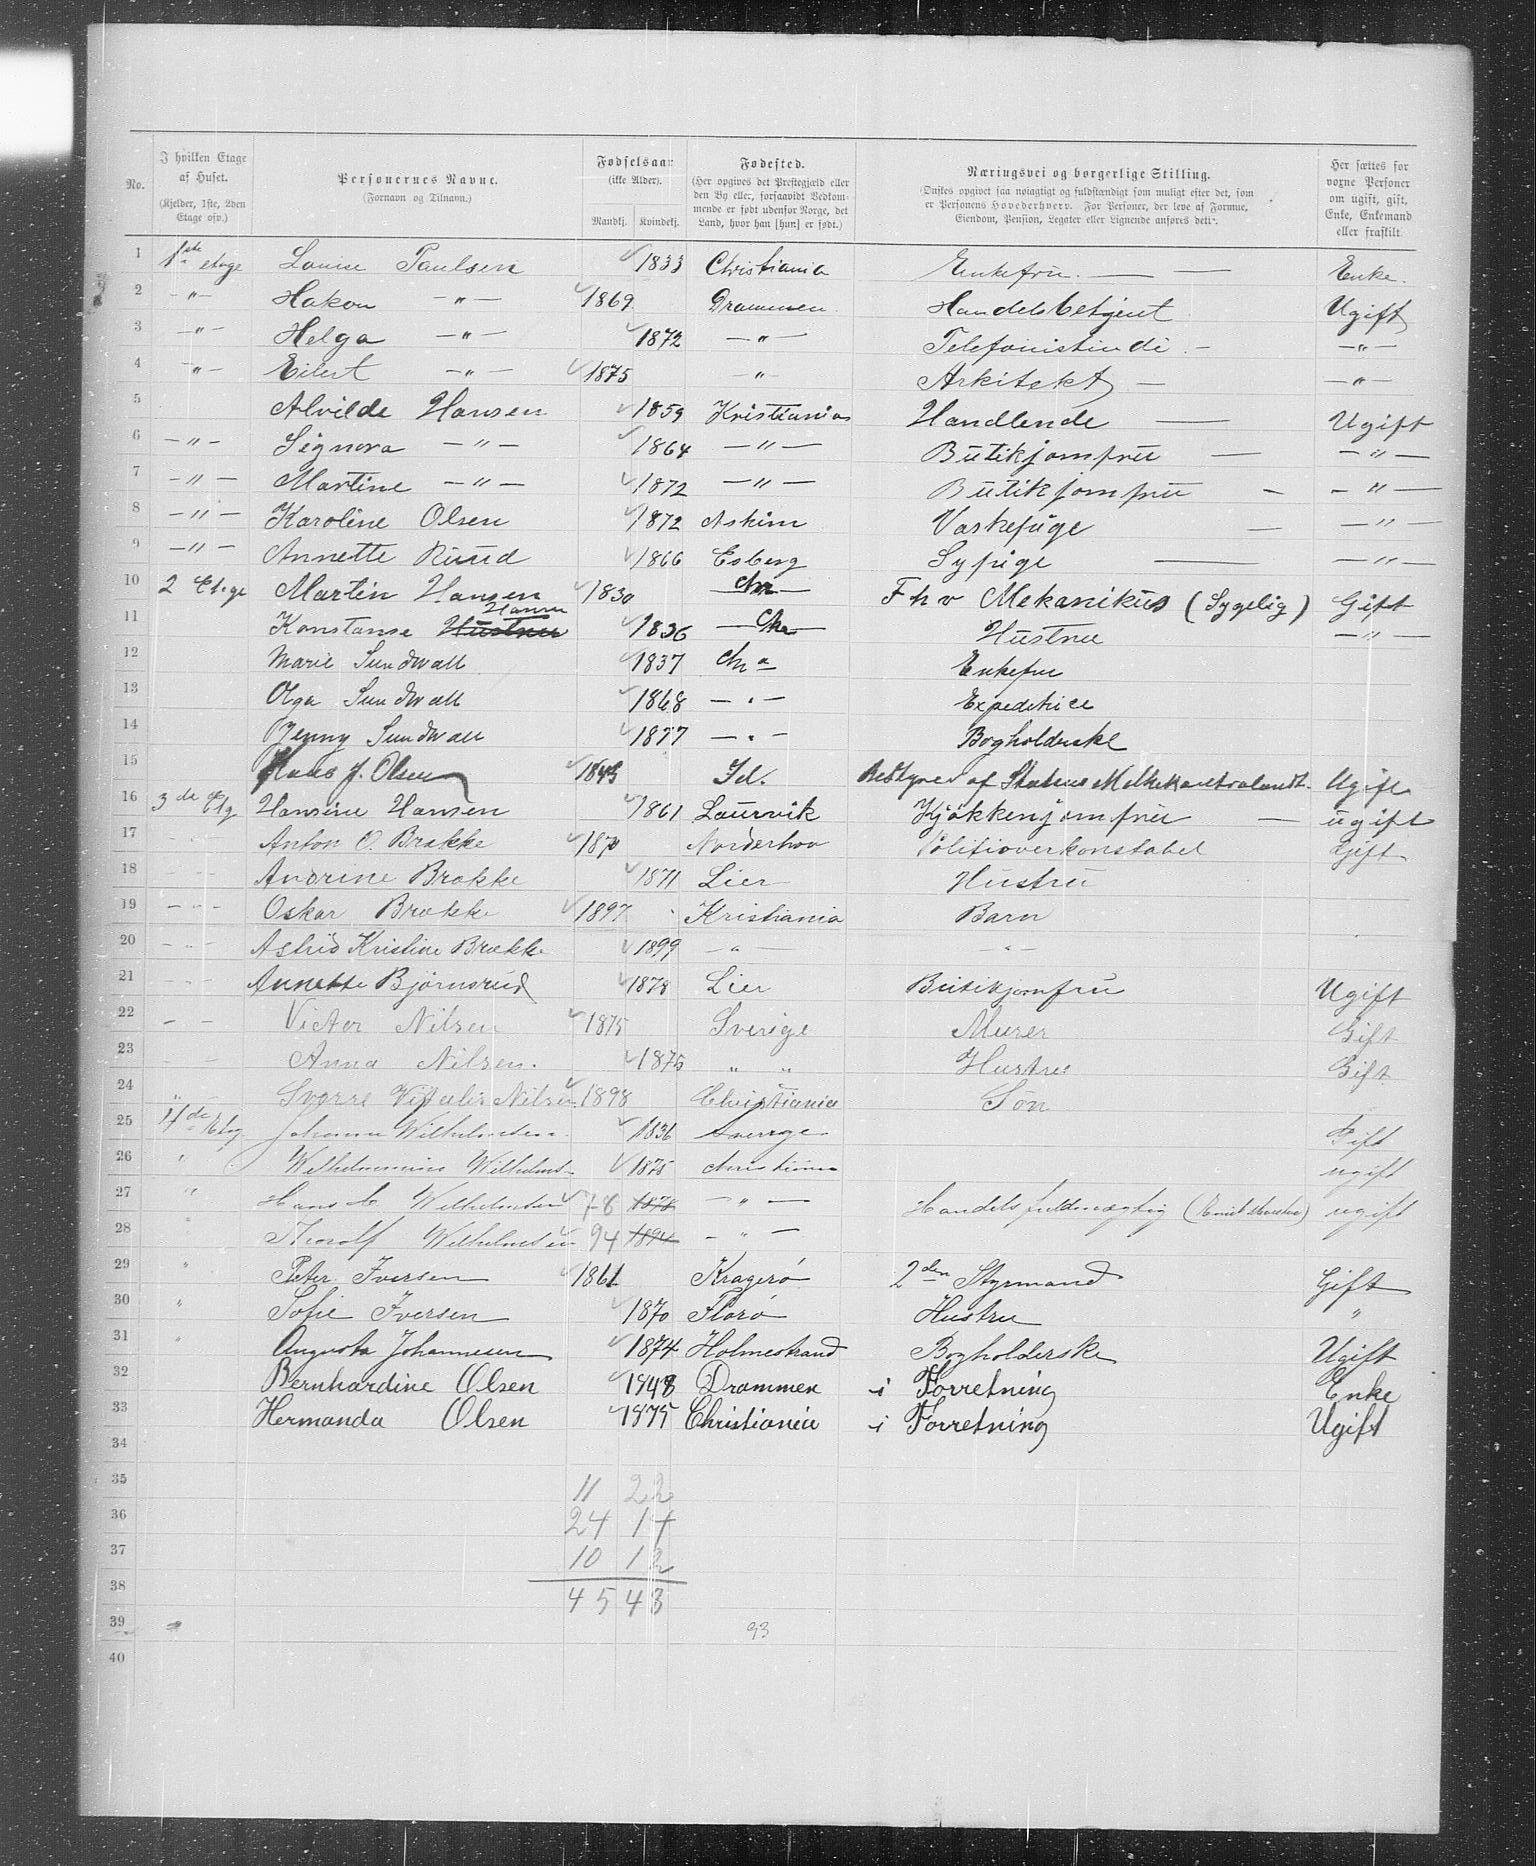 No.
I hvilken Etage af Huset. (Kjelder, 1ste, 2den Etage osv.)
Personernes Navne. (Fornavn og Tilnavn.)
Fødselsaar (ikke Alder). Mandkj. Kvindekj.
Fødested. (Her opgives det Præstegjæld eller den By eller, forsaavidt Vedkommende er født udenfor Norge, det Land, hvor han [hun] er født.)
Næringsvei og borgerlige Stilling. (Ønskes opgivet saa nøiagtigt og fuldstændigt som muligt efter det, som er Personens Hovederhverv. For Personer, der leve af Formue, Eiendom, Pension, Legater eller Lignende anføres dette.)
Her sættes for voxne Personer om ugift, gift, Enke, Enkemand eller fraskilt.
1 1ste etage Louise Paulsen 1833 Christiania Enkefru. — — Enke.
2 — " — Hakon — " — 1869 Drammen. Handelsbetjent Ugift
3 — " — Helga — " — 1872 — " — Telefonistinde — — " —
4 — " — Eilert — " — 1875 — " — Arkitekt — — " —
5 Alvilde Hansen 1859 Kristiania Handlende — Ugift
6 — " — Signora — " — 1864 — " — Butikjomfru — — " —
7 — " — Martine — " — 1872 — " — Butikjomfru — — " —
8 — " — Karoline Olsen 1872 Askim Vaskepige — — " —
9 — " — Annette Ruud 1866 Esberg Sypige — — " —
10 2 Etage Martin Hansen 1830 Chr Fhv Mekanikus (Sygelig) Gift
11 Konstanse Hustru Hansen 1836 Chr Hustru — " —
12 Marie Sundwall 1837 Chr a Enkefru
13 Olga Sundwall 1868 — " — Expeditrice
14 Jenny Sundwall 1877 — " — Bogholderske
15 Hans J. Olsen 1843 Id. Bestyrer af Statens Ugift
16 3de Etg Hansine Hansen 1861 Laurvik Kjøkkenjomfru — ugift
17 Anton O. Brække 1870 Norderhov Politioverkonstabel Gift
18 — " — Andrine Brække 1871 Lier Hustru
19 — " — Oskar Brække 1897 Kristiania Barn
20 — " — Astrid Kristine Brække 1899 — " — — " —
21 — " — Annette Bjørnsrud 1878 Lier Butikjomfru Ugift
22 — — Victor Nilsen 1875 Sverige Murer Gift
23 — — Anna Nilsen. 1875 " " Hustru Gift
24 " — Sverre Vitalis Nilsen 1898 Christiania Søn
25 4de Etg Johanne Wilhelmsen 1836 Sverige Gift
26 " Wilhelmine Wilhelms— 1875 Christiania ugift
27 " Hans C Wilhelmsen 78 1878 — " — Handelsfuldmægtig ugift
28 " Thorolf Wilhelmsen 94 1894 — " —
29 " Peter Iversen 1861 Kragerø 2den Styrmand Gift
30 " Sofie Iversen 1870 Florø Hustru "
31 " Augusta Johannesen 1874 Holmestrand Bogholderske Ugift
32 Bernhardine Olsen 1848 Drammen i Forretning Enke
33 Hermanda Olsen 1875 Christiania i Forretning Ugift
34
35 11 22
36 24 14
37 10 12
38 45 43
39 93
40